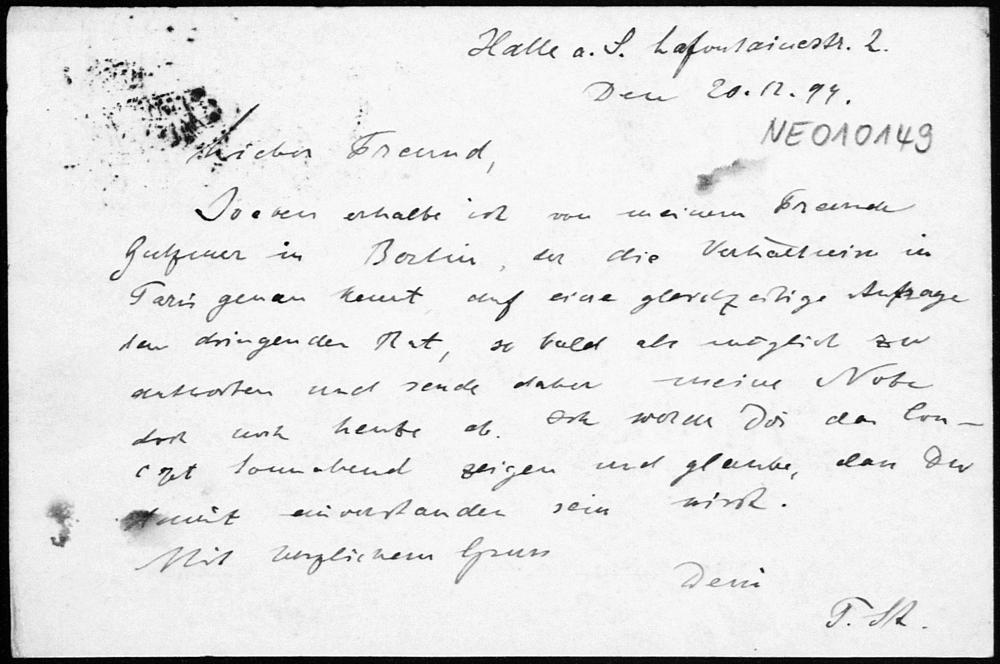 Halle a. S. Lafontainestr. 2.
Den 20.12.94.
NE010149
Lieber Freund,
Soeben erhalte ich von meinem Freunde
in Berlin, der die Verhältnisse in
Paris genau kennt auf eine gleichzeitige Anfrage
den dringenden Rat, so bald als möglich zu
antworten und sende daher meine Note
doch noch heute ab. Ich werde Dir das Con-
cept Sonnabend zeigen und glaube, dass Du
damit einverstanden sein wirst.
Mit herzlichem Gruss
Dein
P. St.